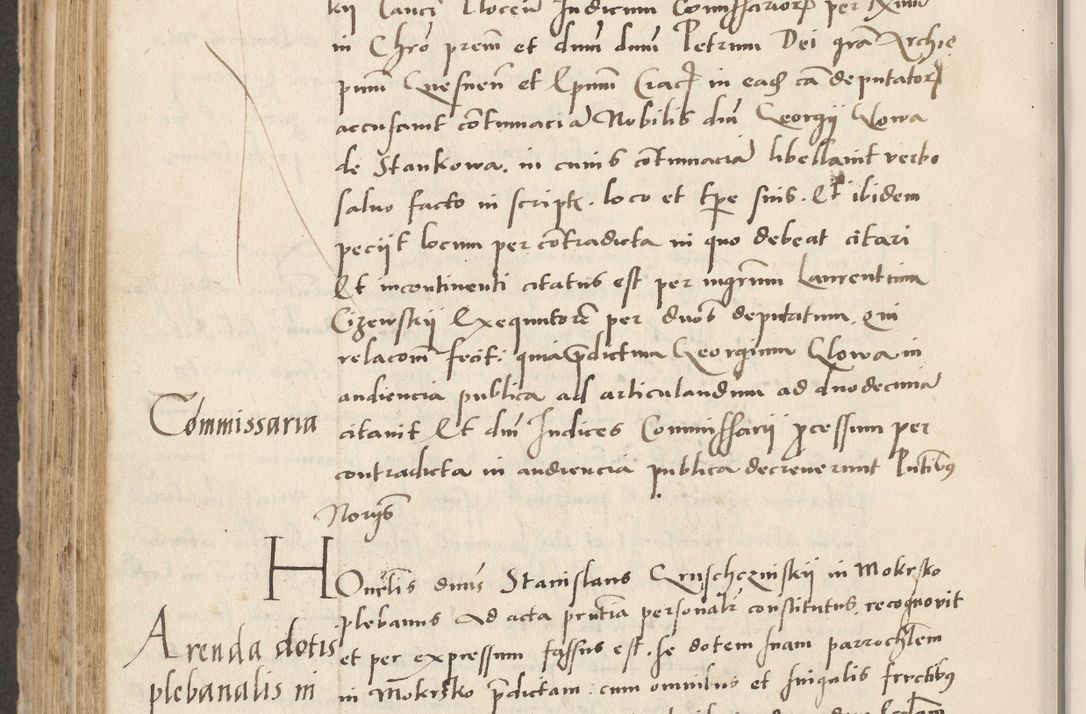 in Chro prem et dnm dnm Petrum Dei gra Archie
pum Gnesnen et Epum Crac in eadem ca deputator
accusavit contumacia Nobilis dni Georgii Glowa
de Stankowa. in cuius contumacia libellavit verbo
salvo facto in scriptis. loco et tpe suis. Et ibidem
peciit locum per contradicta in quo debeat citari
Et incontinenti citatus est per mgrum Laurentium
Gizewskii Exequutore per dnos deputatum. qui
relacom fecit: quia predictum Georgium Glowa in
audiencia publica ad articulandum ad duodecima
citavit Et dni Iudices Commissarii processum per
contradicta in audiencia publica decreverunt Pntibus
Noriis
Commissaria
Honrlis dnus Stanislaus Gruschczinskii in Mokrsko
plebanus ad acta prntia personalr constitutus. recognovit
et per expressum fassus est. se dotem suam parrochlem
in Mokrsko predictam: cum omnibus et singulis fructibus
Arenda dotis
plebanalis in